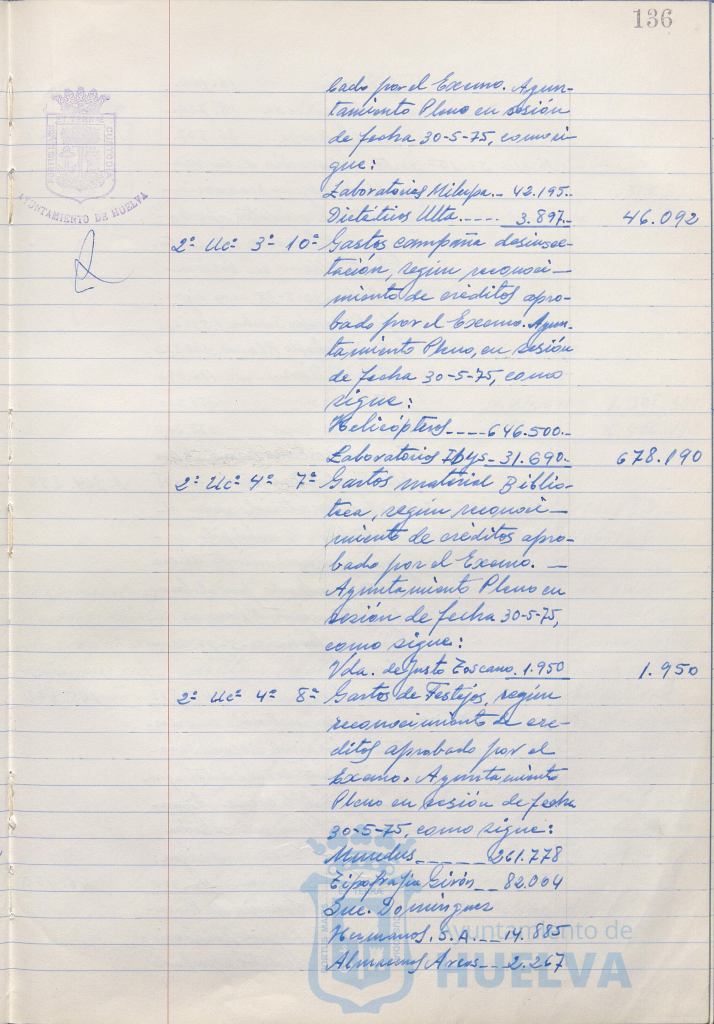 136
AYUNTAMIENTO DE HUELVA
bado por el Excmo. Ayun-
tamiento Pleno en sesión
de fecha 30-5-75, como si-
gue:
Laboratorios Milupa.- 42.195.-
Dietéticos Ulta.---- 3.897.- 46.092
2º Uº 3º 10º Gastos campaña desinsec-
tación, según reconoci-
miento de créditos apro-
bado por el Excmo. Ayun-
tamiento Pleno, en sesión
de fecha 30-5-75, como
sigue:
Helicópteros----646.500.-
Laboratorios Ibys-31.690.- 678.190
2º Uº 4º 7º Gastos material Biblio-
teca, según reconoci-
miento de créditos apro-
bado por el Excmo. -
Ayuntamiento Pleno en
sesión de fecha 30-5-75,
como sigue:
Vda. de Justo Toscano. 1.950 1.950
2º Uº 4º 8º Gastos de Festejos, según
reconocimiento de cré-
ditos aprobado por el
Excmo. Ayuntamiento
Pleno en sesión de fecha
30-5-75, como sigue:
-----261.778
Tipografía Girón--82.004
Suc. Domínguez
Hermanos, S.A.--14.885
Almacenes Arcos--2.267
Ayuntamiento de
HUELVA